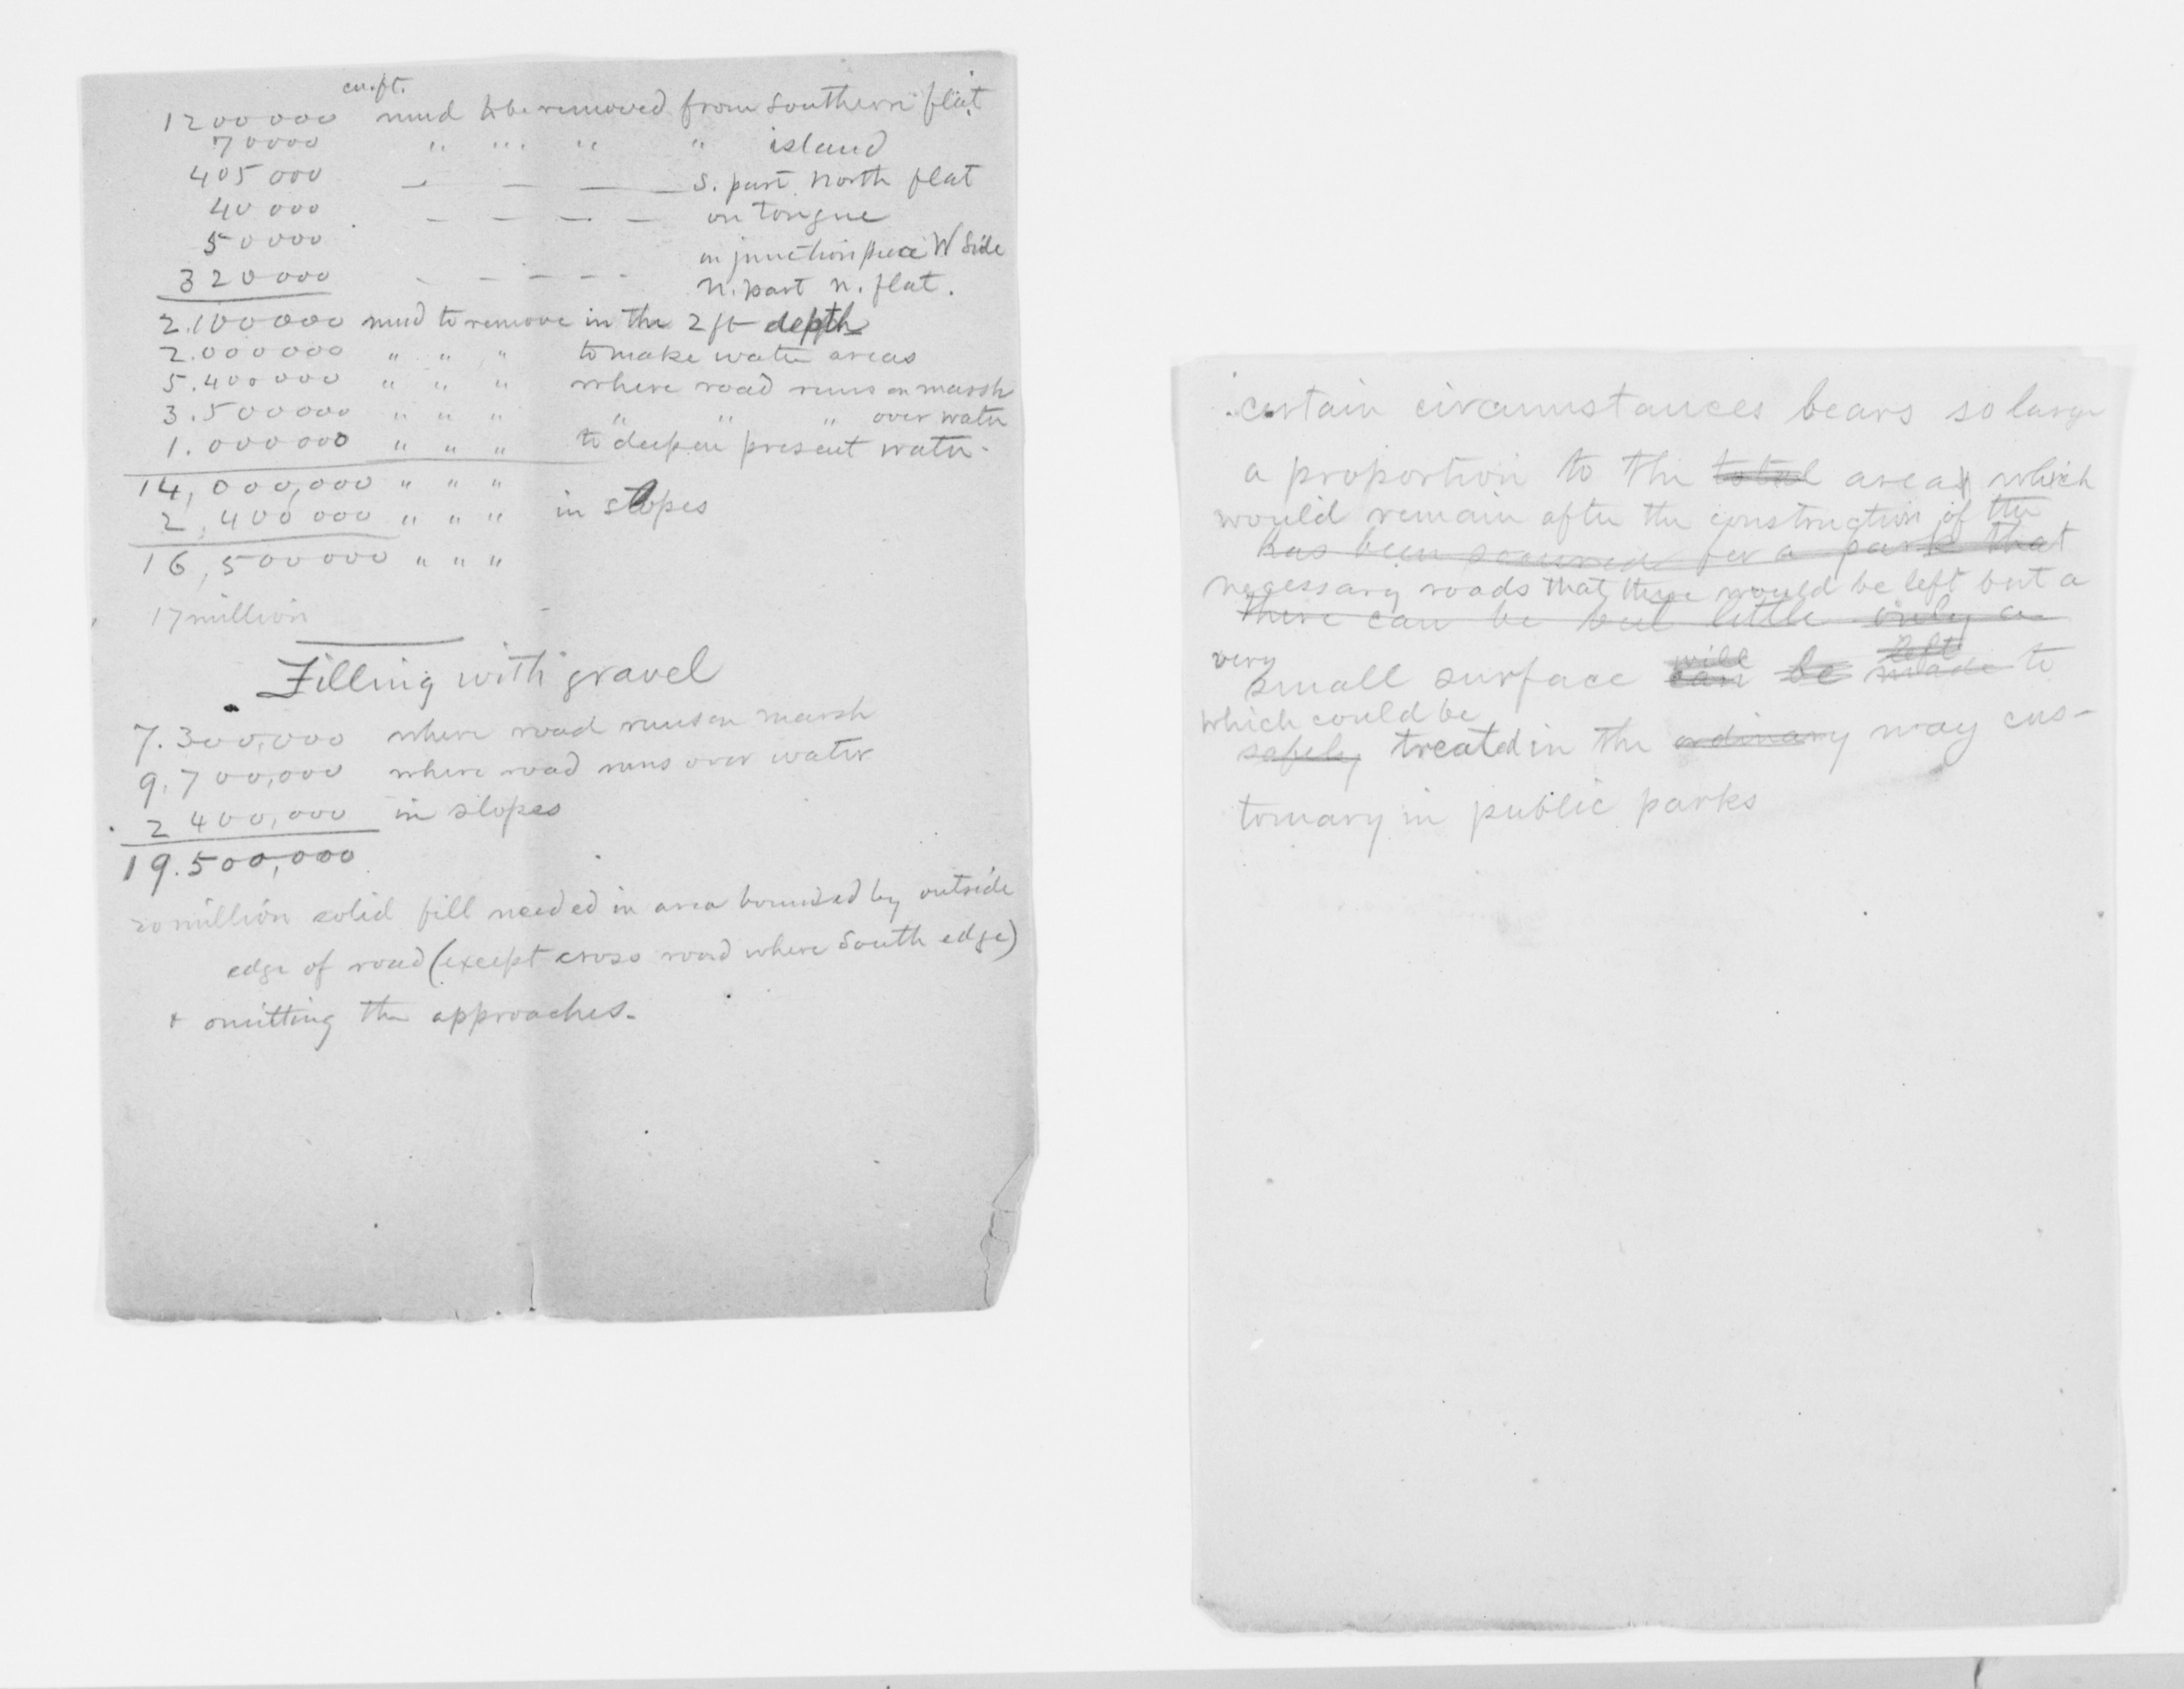 cu. ft.
1200000 mud to be removed from Southern flat
70000 " " " " island
405000 — — — — S. part North flat
40000 — — — — on tongue
50000 on junction piece W Side
320000 - - - - - N. part N. flat.
2.100000 mud to remove in the 2 ft depth
2.000000 " " " to make water areas
5.400000 " " " where road runs on marsh
3.500000 " " " " " " over water
1.000000 " " " to deepen present water-
14,000,000 " " "
2,400000 " " " in slopes
16,500000 " " "
17 million
Filling with gravel
7.300,000 where road runs on marsh
9,700,000 where road runs over water
2 400,000 in slopes
19.500,000
20 million solid fill needed in area bounded by outside
edge of road (except cross road where South edge)
+ omitting the approaches.
certain circumstances bears so large
a proportion to the total area which
would remain after the construction of the
has been secured for a park that
necessary roads that there would be left but a
there can be but little only a
very will left
small surface can be made to
which could be
safely treated in the ordinary way cus-
tomary in public parks